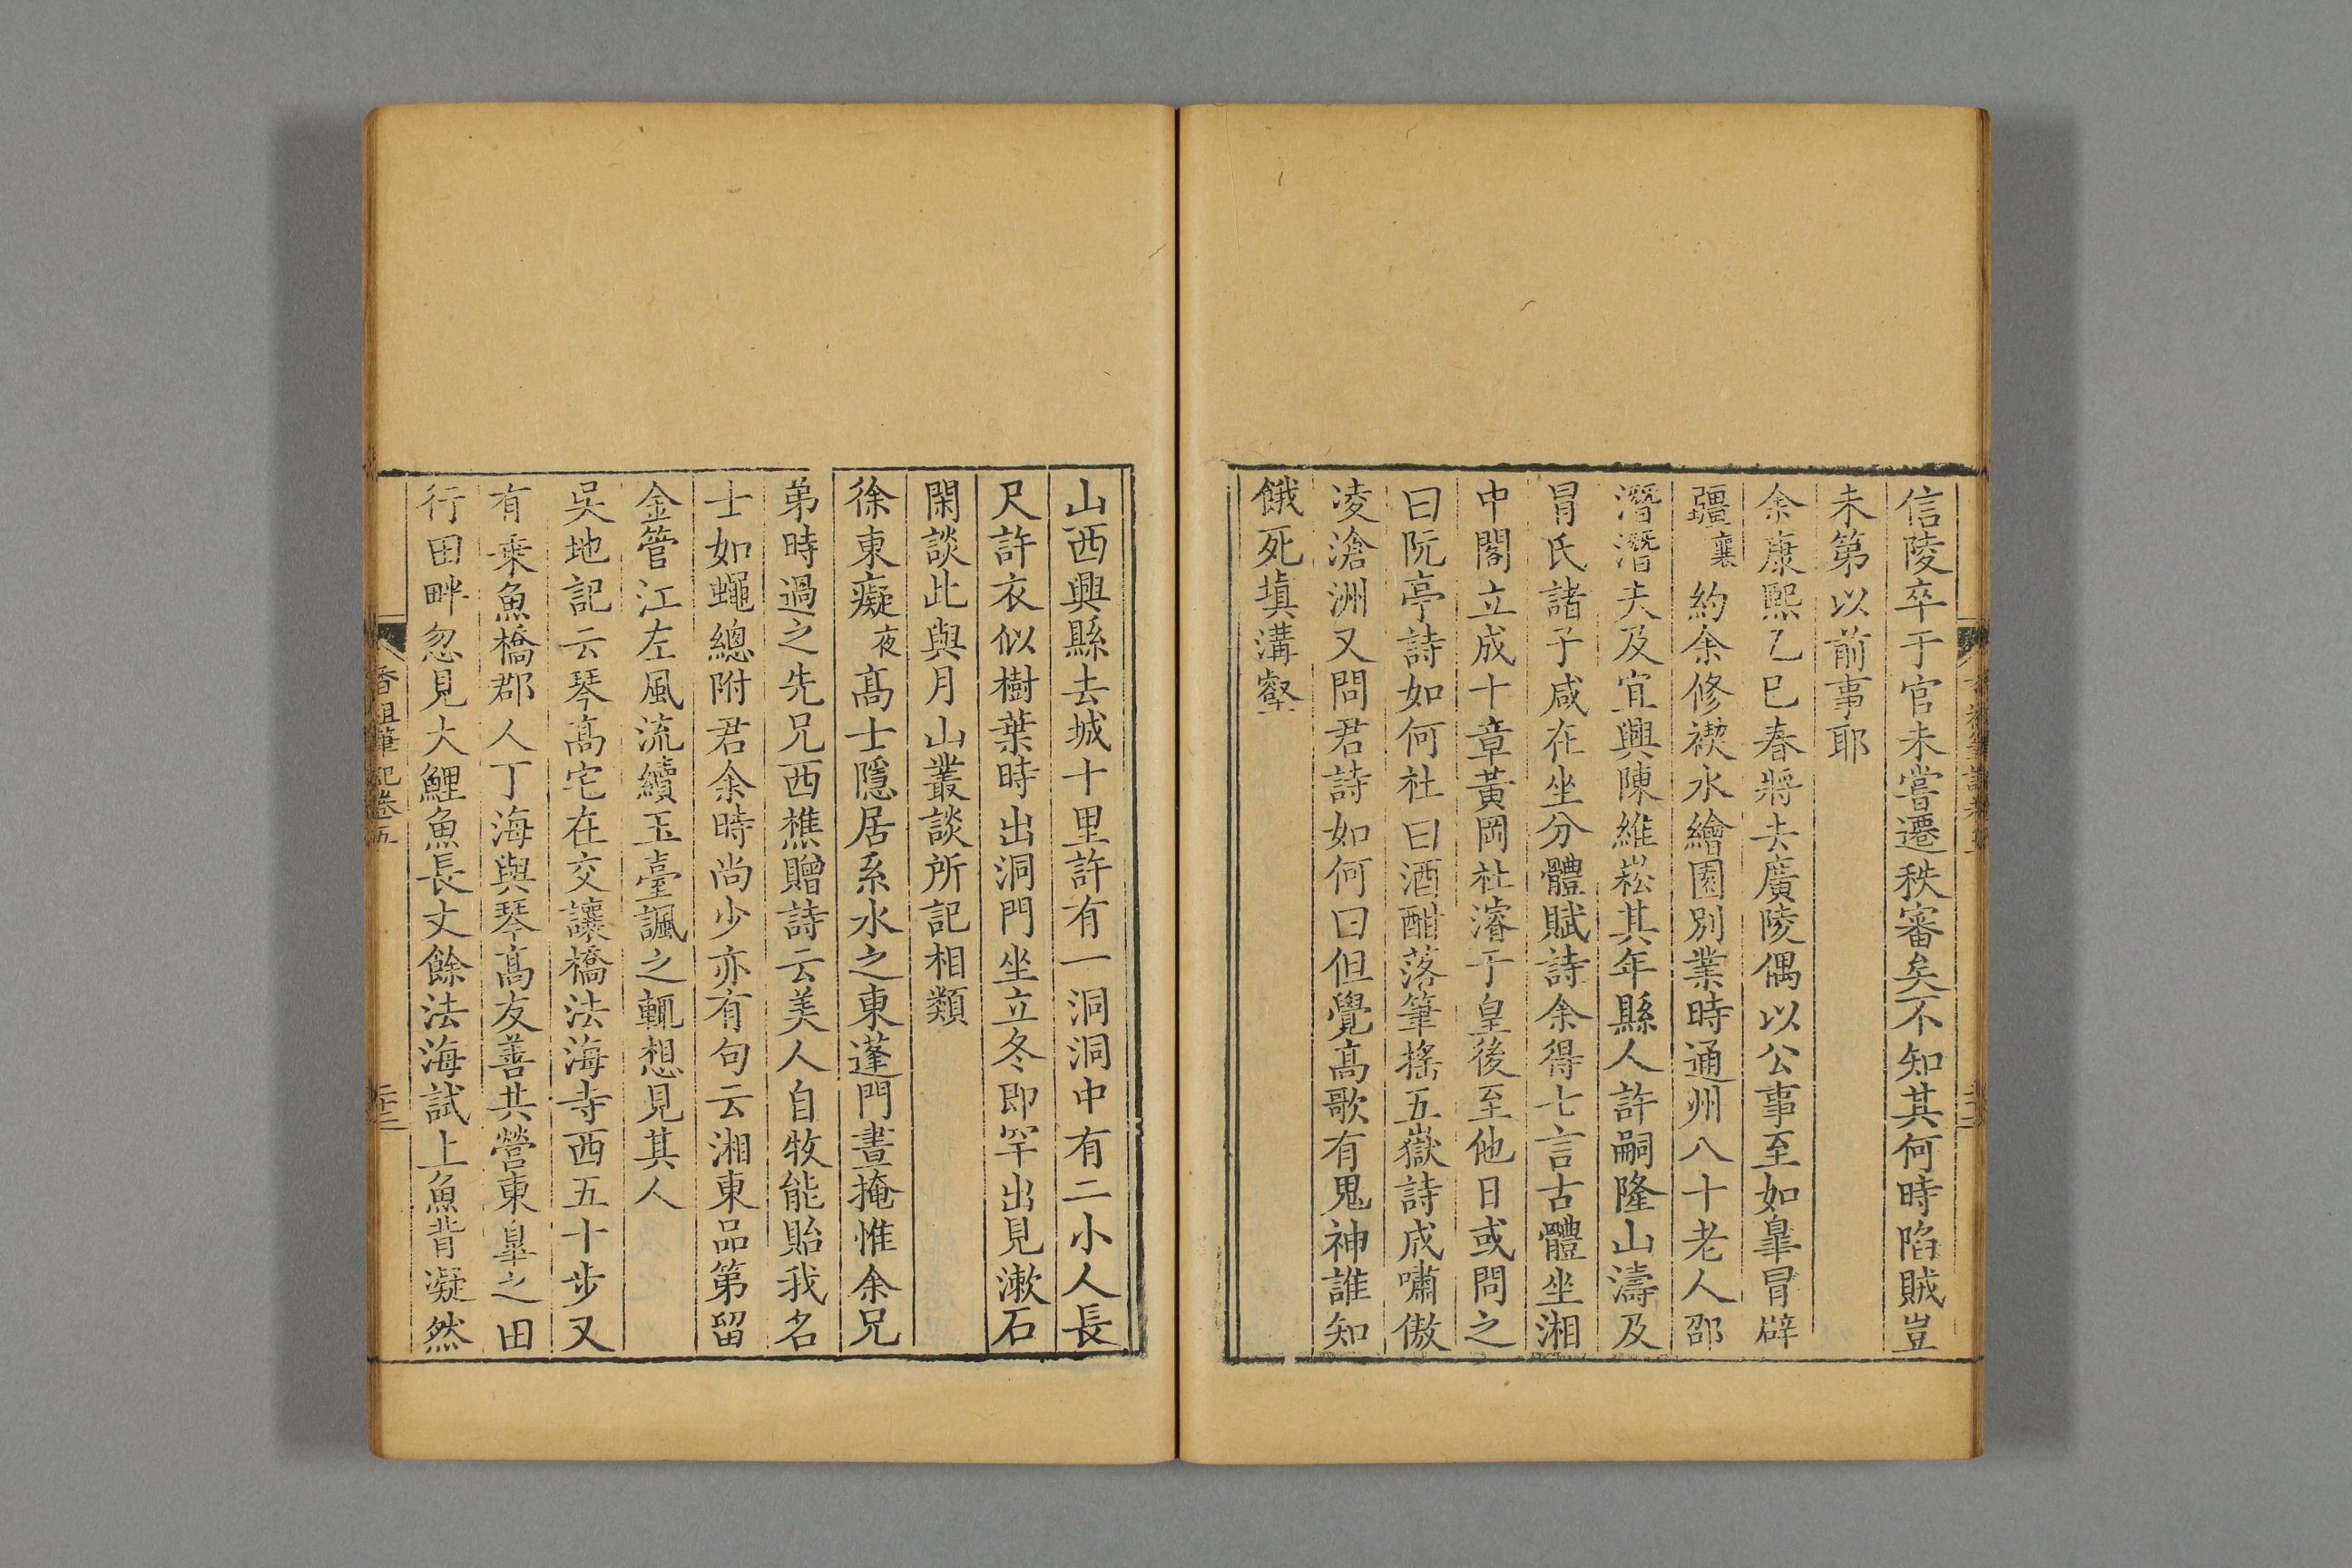 信陵卒于官未嘗遷秩審矣不知其何時陷賊豈
未第以前事耶
余康熙乙巳春將去廣陵偶以公事至如臯冒辟
疆襄約余修禊水繪園別業時通州八十老人邵
潛潛夫及宜興陳維崧其年縣人許嗣隆山濤及
冒氏諸子咸在坐分體賦詩余得七言古體坐湘
中閣立成十章黃岡杜濬于皇後至他日或問之
曰阮亭詩如何杜曰酒酣落筆搖五嶽詩成嘯傲
凌滄洲又問君詩如何曰但覺高歌有鬼神誰知
餓死塡溝壑
山西興縣去城十里許有一洞洞中有二小人長
尺許衣似樹葉時出洞門坐立冬即罕出見漱石
閑談此與月山叢談所記相類
徐東癡夜高士隱居系水之東蓬門晝掩惟余兄
弟時過之先兄西樵贈詩云美人自牧能貽我名
士如蠅總附君余時尚少亦有句云湘東品第留
金管江左風流續玉臺諷之輒想見其人
吳地記云琴高宅在交讓橋法海寺西五十步又
有乘魚橋郡人丁海與琴高友善共營東臯之田
行田畔忽見大鯉魚長丈餘法海試上魚背凝然
香祖筆記卷五